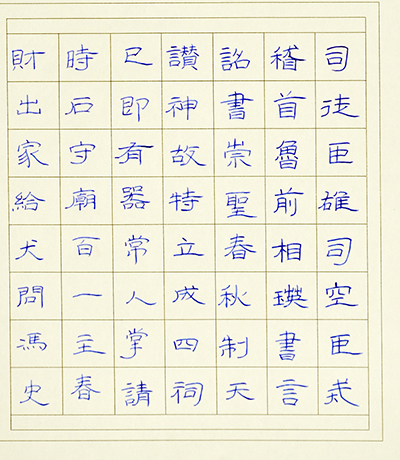 司徒臣雄司空臣戒
稽首魯前相瑛書言
詔書崇聖春秋制天
讚神故特立成四祠
已即有器常人掌請
時石守廟百一主春
財出家給犬問馮史